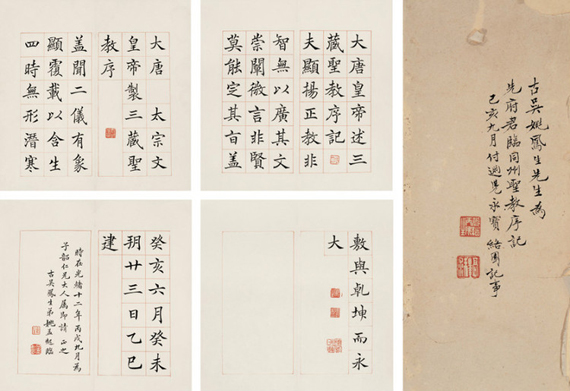 大唐 太宗文
皇帝製三藏聖
教序
蓋聞二儀有象
顯覆載以含生
四時無形潛寒
大唐皇帝述三
藏聖教序記
夫顯揚正教非
智無以廣其文
崇闡微言非賢
莫能定其旨蓋
癸亥六月癸未
朔廿三日乙巳
建
時在光緒十二年丙戌九月為
子韶仁兄大人屬即請 正之
古吳鳳生弟姚孟起臨
敷與乾坤而永
大
古吳姚鳳生先生為
先府君臨同州聖教序記
己亥九月付兒永寶 園記事